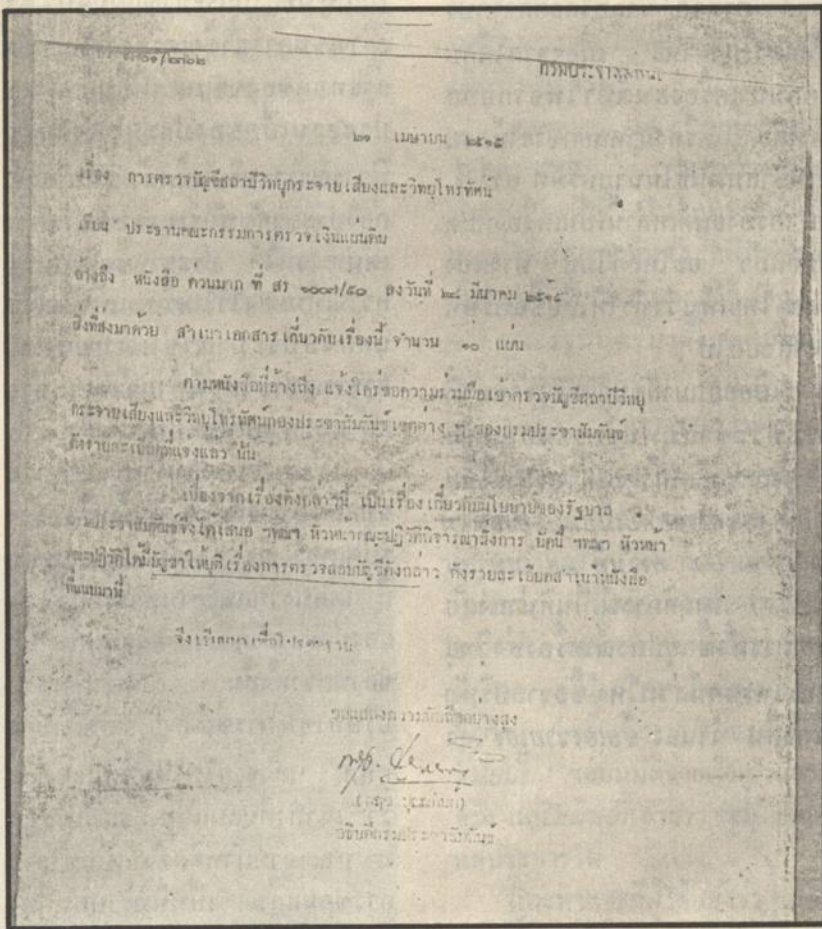 กรมประชาสัมพันธ์
๒๑ เมษายน ๒๕๑๕
เรื่อง การตรวจบัญชีสถานีวิทยุกระจายเสียงและวิทยุโทรทัศน์
เรียน ประธานคณะกรรมการตรวจเงินแผ่นดิน
อ้างถึง หนังสือ ด่วนมาก ที่ สร ๑๐๐๗/๕๐ ลงวันที่ ๒๘ มีนาคม ๒๕๑๕
สิ่งที่ส่งมาด้วย สำเนาเอกสารเกี่ยวกับเรื่องนี้ จำนวน ๑๐ แผ่น
ตามหนังสือที่อ้างถึง แจ้งใคร่ขอความร่วมมือเข้าตรวจบัญชีสถานีวิทยุ
กระจายเสียงและวิทยุโทรทัศน์กองประชาสัมพันธ์เขตต่าง ๆ ของกรมประชาสัมพันธ์
ดังรายละเอียดที่แจ้งแล้ว นั้น
เนื่องจากเรื่องดังกล่าวนี้ เป็นเรื่องเกี่ยวกับนโยบายของรัฐบาล
กรมประชาสัมพันธ์จึงได้เสนอ ฯพณฯ หัวหน้าคณะปฏิวัติพิจารณาสั่งการ บัดนี้ ฯพณฯ หัวหน้า
คณะปฏิวัติได้มีบัญชาให้ยุติเรื่องการตรวจสอบบัญชีดังกล่าว ดังรายละเอียดสำเนาหนังสือ
ที่แนบมานี้
จึงเรียนมาเพื่อโปรดทราบ
ขอแสดงความนับถืออย่างสูง
อธิบดีกรมประชาสัมพันธ์